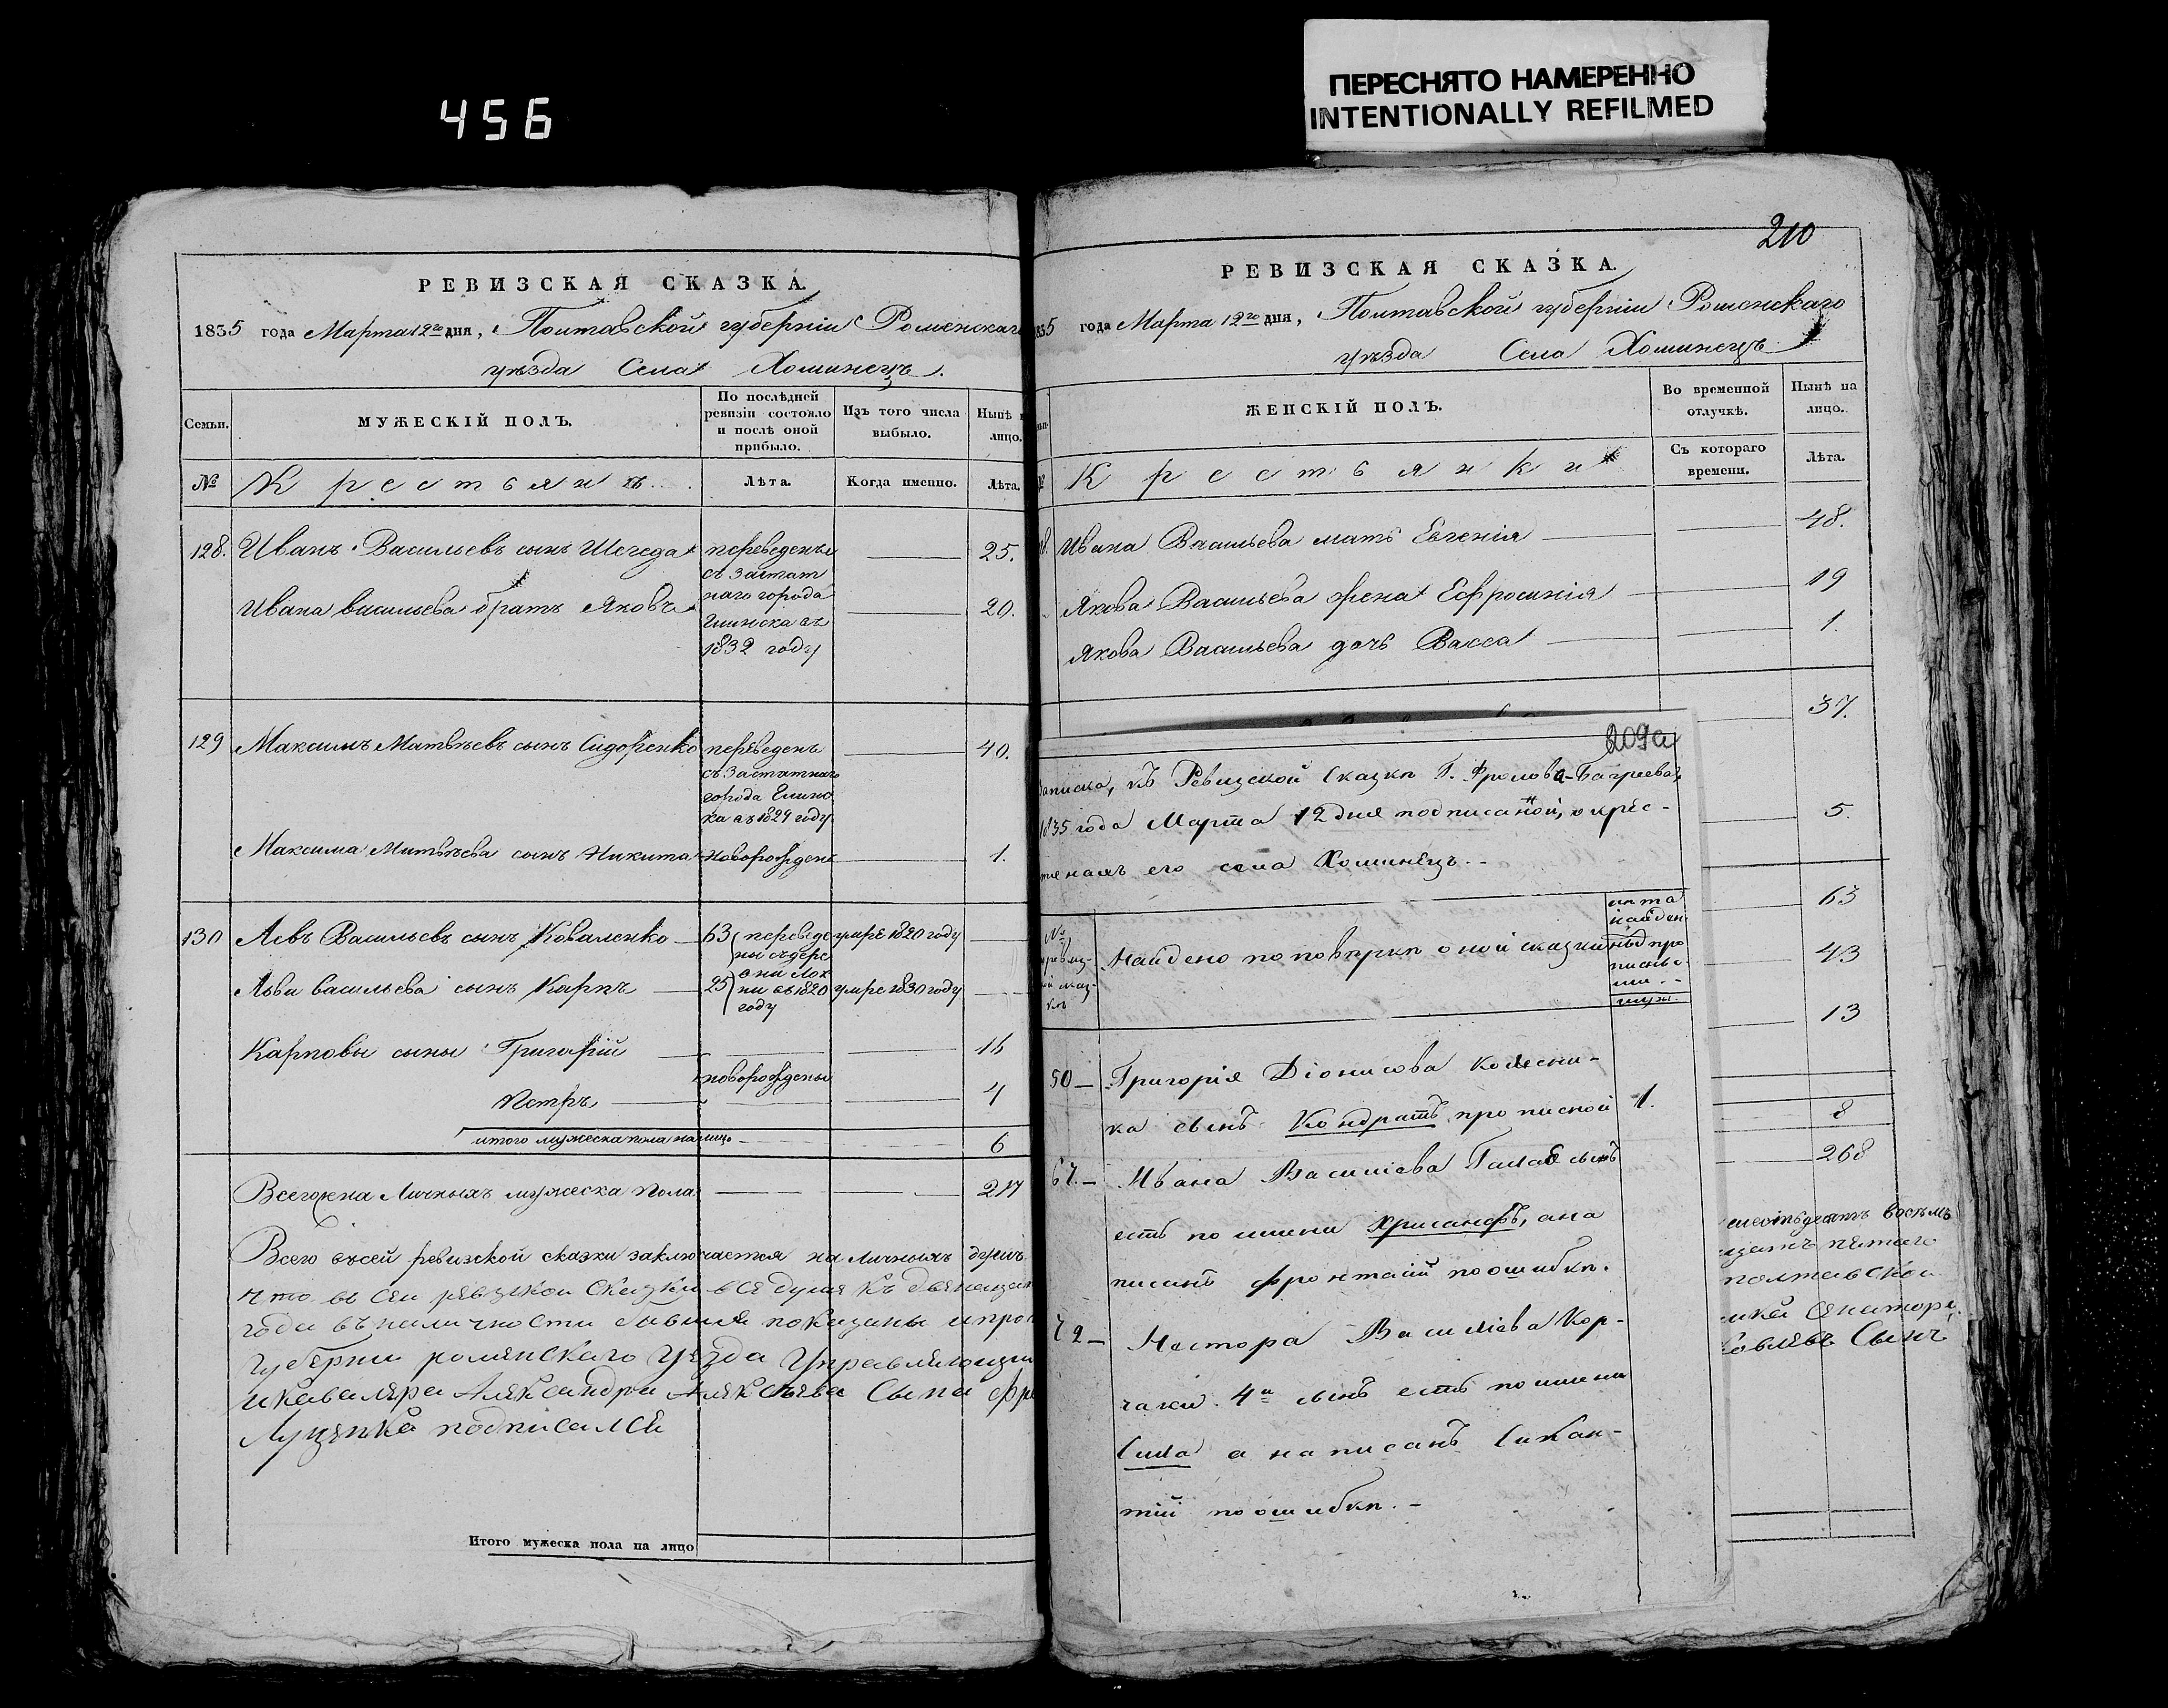 456
ПЕРЕСНЯТО НАМЕРЕННО
INTENTIONALLY REFILMED
РЕВИЗСКАЯ СКАЗКА.
1835 года Марта 12го дня, Полтавской губерніи Роменскаго
уѣзда Села Хоминецъ.
Семьи.
МУЖЕСКІЙ ПОЛЪ.
По послѣдней
ревизіи состояло
и послѣ оной
прибыло.
Изъ того числа
выбыло.
Нынѣ
лицо.
№
Крестьянѣ
Лѣта.
Когда именно.
Лѣта.
128. Иванъ Васильевъ сынъ переведены 25.
съ заштат
наго города
Ивана васильева братъ Яковъ 20.
Глинска въ
1832 году
129 Максимъ Матвѣевъ сынъ Сидоренко переведенъ 40.
съ Заштатнаго
города Глинс
ка въ 1829 году
Максима Матвѣева сынъ Никита новорожденъ 1.
130 Левъ Васильевъ сынъ Коваленко 63 переведе умре 1820 году
ны съ дере
вни Лох
Льва васильева сынъ Карпъ 25 ни въ 1820 умре 1830 году
году
Карповы сыны Григорій 16
новорождены
Петръ 4
итого мужеска пола налицо 6
Всего на Личныхъ мужеска Пола 217
Всего въ сей ревизской сказки заключается на личныхъ душъ
что въ сей ревизкой Сказки все души къ
года въ наличности бывшие показаны и
Губернии роменскаго уезда Управляющии
икавалера Александра Алексеева Сына
подписался
Итого мужеска пола на лицо
210
РЕВИЗСКАЯ СКАЗКА.
1835 года Марта 12го дня, Полтавской губерніи Роменскаго
уѣзда Села Хоминецъ
ЖЕНСКІЙ ПОЛЪ.
Во временной
отлучкѣ.
Нынѣ на
лицо.
Крестьянки
Съ котораго
времени.
Лѣта.
Ивана Васильева мать Евгенія 48.
Якова Васильева жена Ефросинія 19
Якова Васильева дочь Васса 1.
37.
5.
63
43
13
8
268
шестьдесятъ восемь
пятаго
полтавской
Сынъ
209а
Записка, къ Ревизской Сказкѣ Г. Фролова-Багреева
1835 года Марта 12 дня подписанной, о крес-
тьянахъ его села Хоминецъ.-
№
ревиз-
ой сказ-
ки
Найдено по повѣркѣ оной сказки
лѣта
найден
ные про
писны
ми
муж.
50 — Григорія Діонисова Колесни-
ка сынъ Кондратъ прописной 1.
67. — Ивана Василіева сынъ
есть по имени Хрисанфъ, а на
писанъ по ошибкѣ.
72 — Нестора Василіева Кор-
чаки 4й сынъ есть по имени
Сила а написанъ
тій по ошибкѣ.-